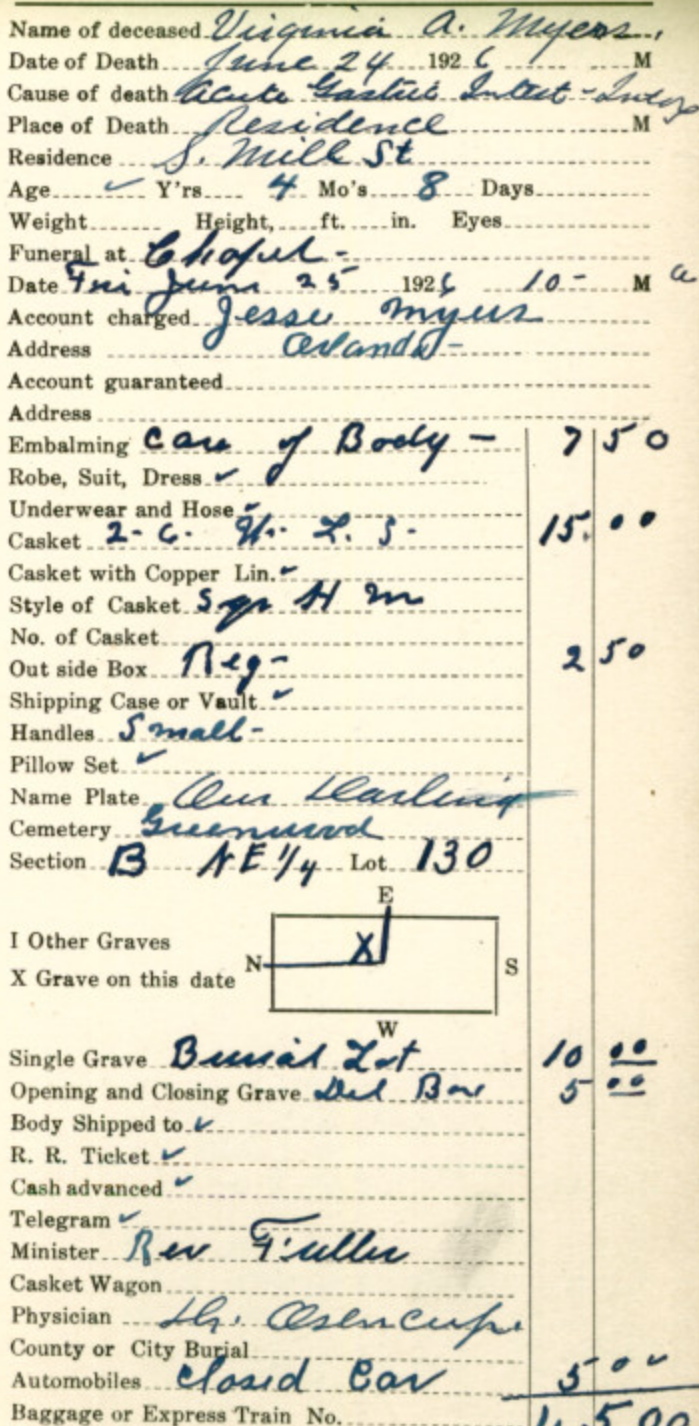 Name of deceased Virginia A. Myers,
Date of Death June 24 1926 M
Cause of death Acute Gastric Intest - Intox
Place of Death Residence M
Residence S. Mill St
Age ✓ Y'rs 4 Mo's 8 Days
Weight Height, ft. in. Eyes
Funeral at Chapel -
Date Fri June 25 1926 10 - M a
Account charged Jesse Myers
Address Orlando -
Account guaranteed
Address
Embalming Care of Body - 7 50
Robe, Suit, Dress ✓
Underwear and Hose ✓
Casket 2-6. Wh. L. S. 15.00
Casket with Copper Lin. ✓
Style of Casket Sqr H m
No. of Casket
Out side Box Reg - 2 50
Shipping Case or Vault ✓
Handles Small -
Pillow Set ✓
Name Plate Our Darling
Cemetery Greenwood
Section B NE 1/4 Lot 130
E
I Other Graves
X
N
S
X Grave on this date
W
Single Grave Burial Lot 10 00
Opening and Closing Grave Del Box 5 00
Body Shipped to ✓
R. R. Ticket ✓
Cash advanced ✓
Telegram ✓
Minister Rev Fuller
Casket Wagon
Physician Dr.
County or City Burial
Automobiles Closed Car 5 00
Baggage or Express Train No.